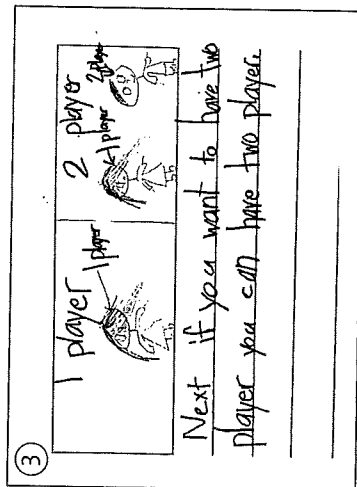 3
1 player
1 player
2 player
1 player
2 player
Next if you want to have two
player you can have two player.